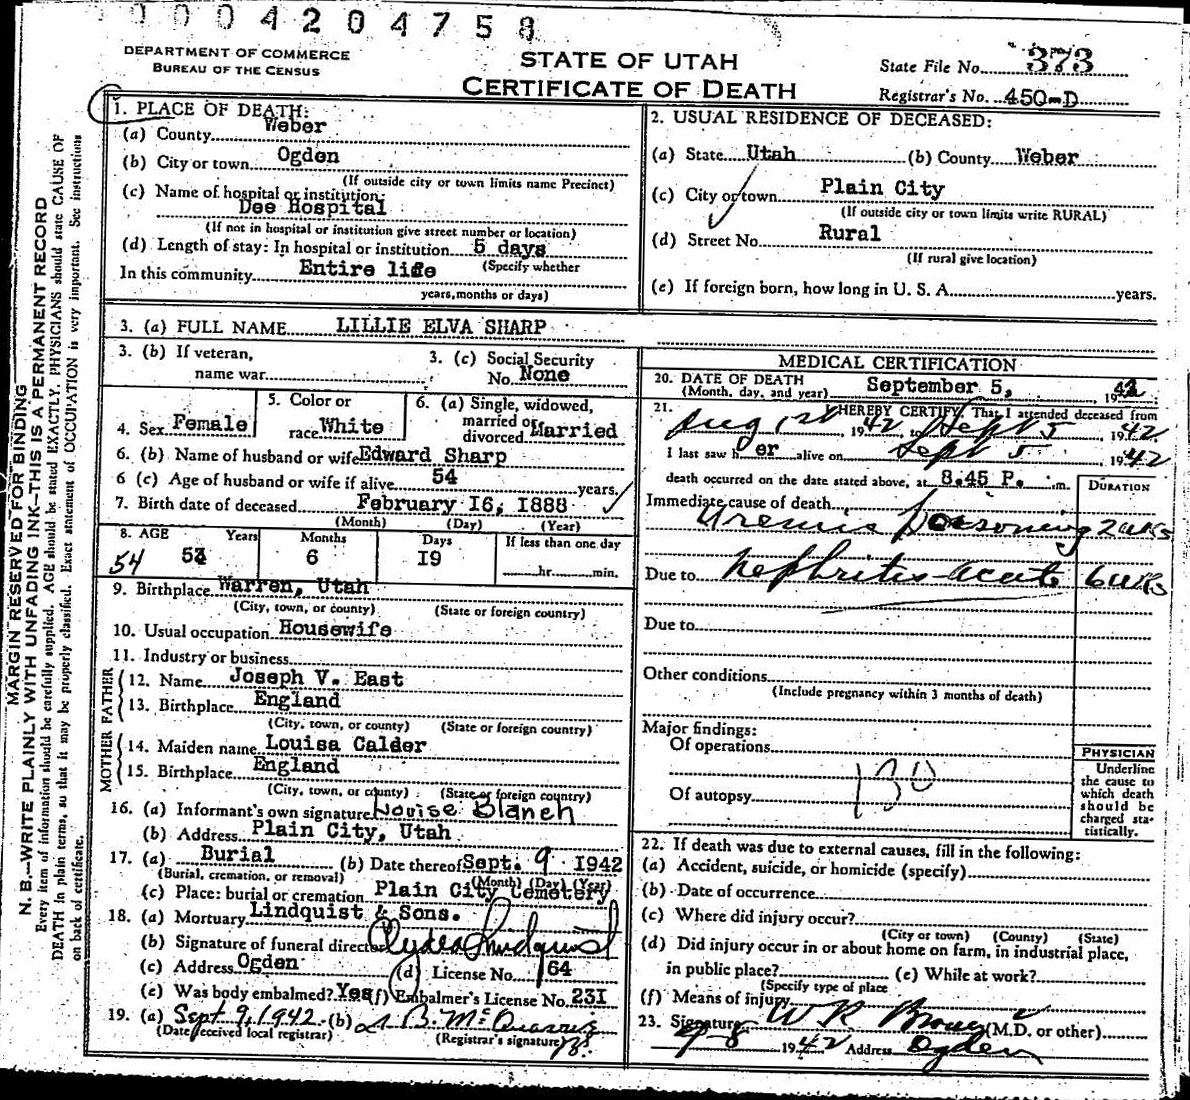 0004204758
DEPARTMENT OF COMMERCE
BUREAU OF THE CENSUS
STATE OF UTAH
CERTIFICATE OF DEATH
State File No. 373
Registrar's No. 450-D
MARGIN RESERVED FOR BINDING
N. B.—WRITE PLAINLY WITH UNFADING INK—THIS IS A PERMANENT RECORD
Every item of information should be carefully supplied. AGE should be stated EXACTLY. PHYSICIANS should state CAUSE OF
DEATH in plain terms, so that it may be properly classified. Exact statement of OCCUPATION is very important. See instructions
on back of certificate.
1. PLACE OF DEATH:
(a) County Weber
(b) City or town Ogden
(If outside city or town limits name Precinct)
(c) Name of hospital or institution:
Dee Hospital
(If not in hospital or institution give street number or location)
(d) Length of stay: In hospital or institution 5 days
(Specify whether
In this community Entire life
years, months or days)
2. USUAL RESIDENCE OF DECEASED:
(a) State Utah (b) County Weber
(c) City or town Plain City
(If outside city or town limits write RURAL)
(d) Street No. Rural
(If rural give location)
(e) If foreign born, how long in U. S. A. years.
3. (a) FULL NAME LILLIE ELVA SHARP
3. (b) If veteran,
name war
3. (c) Social Security
No. None
4. Sex Female
5. Color or
race White
6. (a) Single, widowed,
married or
divorced Married
6. (b) Name of husband or wife Edward Sharp
6 (c) Age of husband or wife if alive 54 years.
7. Birth date of deceased February 16, 1888
(Month) (Day) (Year)
8. AGE Years Months Days If less than one day
54 6 19 hr. min.
9. Birthplace Warren, Utah
(City, town, or county) (State or foreign country)
10. Usual occupation Housewife
11. Industry or business
FATHER
12. Name Joseph V. East
13. Birthplace England
(City, town, or county) (State or foreign country)
MOTHER
14. Maiden name Louisa Calder
15. Birthplace England
(City, town, or county) (State or foreign country)
16. (a) Informant's own signature Louise Blanch
(b) Address Plain City, Utah
17. (a) Burial (b) Date thereof Sept. 9 1942
(Burial, cremation, or removal) (Month) (Day) (Year)
(c) Place: burial or cremation Plain City Cemetery
18. (a) Mortuary Lindquist & Sons.
(b) Signature of funeral director Clyde Lindquist
(c) Address Ogden (d) License No. 164
(e) Was body embalmed? Yes (f) Embalmer's License No. 231
19. (a) Sept 9, 1942 (b)
(Date received local registrar) (Registrar's signature)
MEDICAL CERTIFICATION
20. DATE OF DEATH
(Month, day, and year) September 5, 1942
21. I HEREBY CERTIFY, That I attended deceased from
Aug 1942, to Sept 5, 1942
I last saw her alive on Sept 5 1942
death occurred on the date stated above, at 8.45 P. m.
DURATION
Immediate cause of death
Uremic Poisoning 2 wks
Due to Nephritis acute 6 wks
Due to
Other conditions
(Include pregnancy within 3 months of death)
Major findings:
Of operations
130
Of autopsy
PHYSICIAN
Underline
the cause to
which death
should be
charged sta-
tistically.
22. If death was due to external causes, fill in the following:
(a) Accident, suicide, or homicide (specify)
(b) Date of occurrence
(c) Where did injury occur?
(City or town) (County) (State)
(d) Did injury occur in or about home on farm, in industrial place,
in public place? (e) While at work?
(Specify type of place
(f) Means of injury
23. Signature W R Brown (M.D. or other)
9-8 1942 Address Ogden